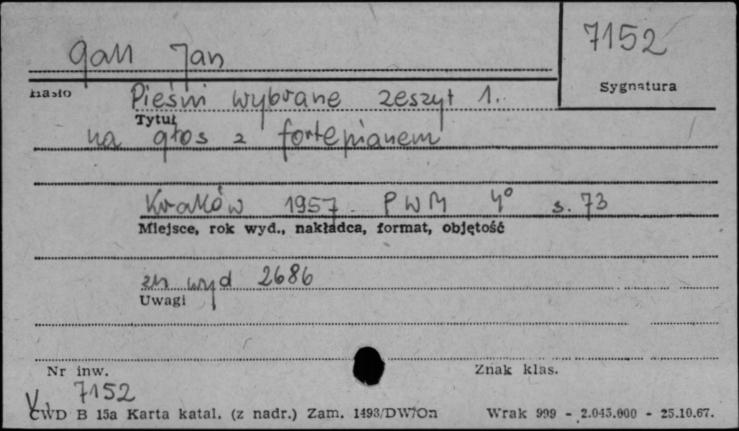 Gall Jan
7152
Sygnatura
Hasło
Pieśni wybrane zeszyt 1.
Tytuł
na głos z fortepianem
Kraków 1957. PWM 4° s. 73
Miejsce, rok wyd., nakładca, format, objętość
zn wyd 2686
Uwagi
Nr inw.
Znak klas.
V. 7152
CWD B 15a Karta katal. (z nadr.) Zam. 1493/DW/On Wrak 909 - 2.045.000 - 25.10.67.